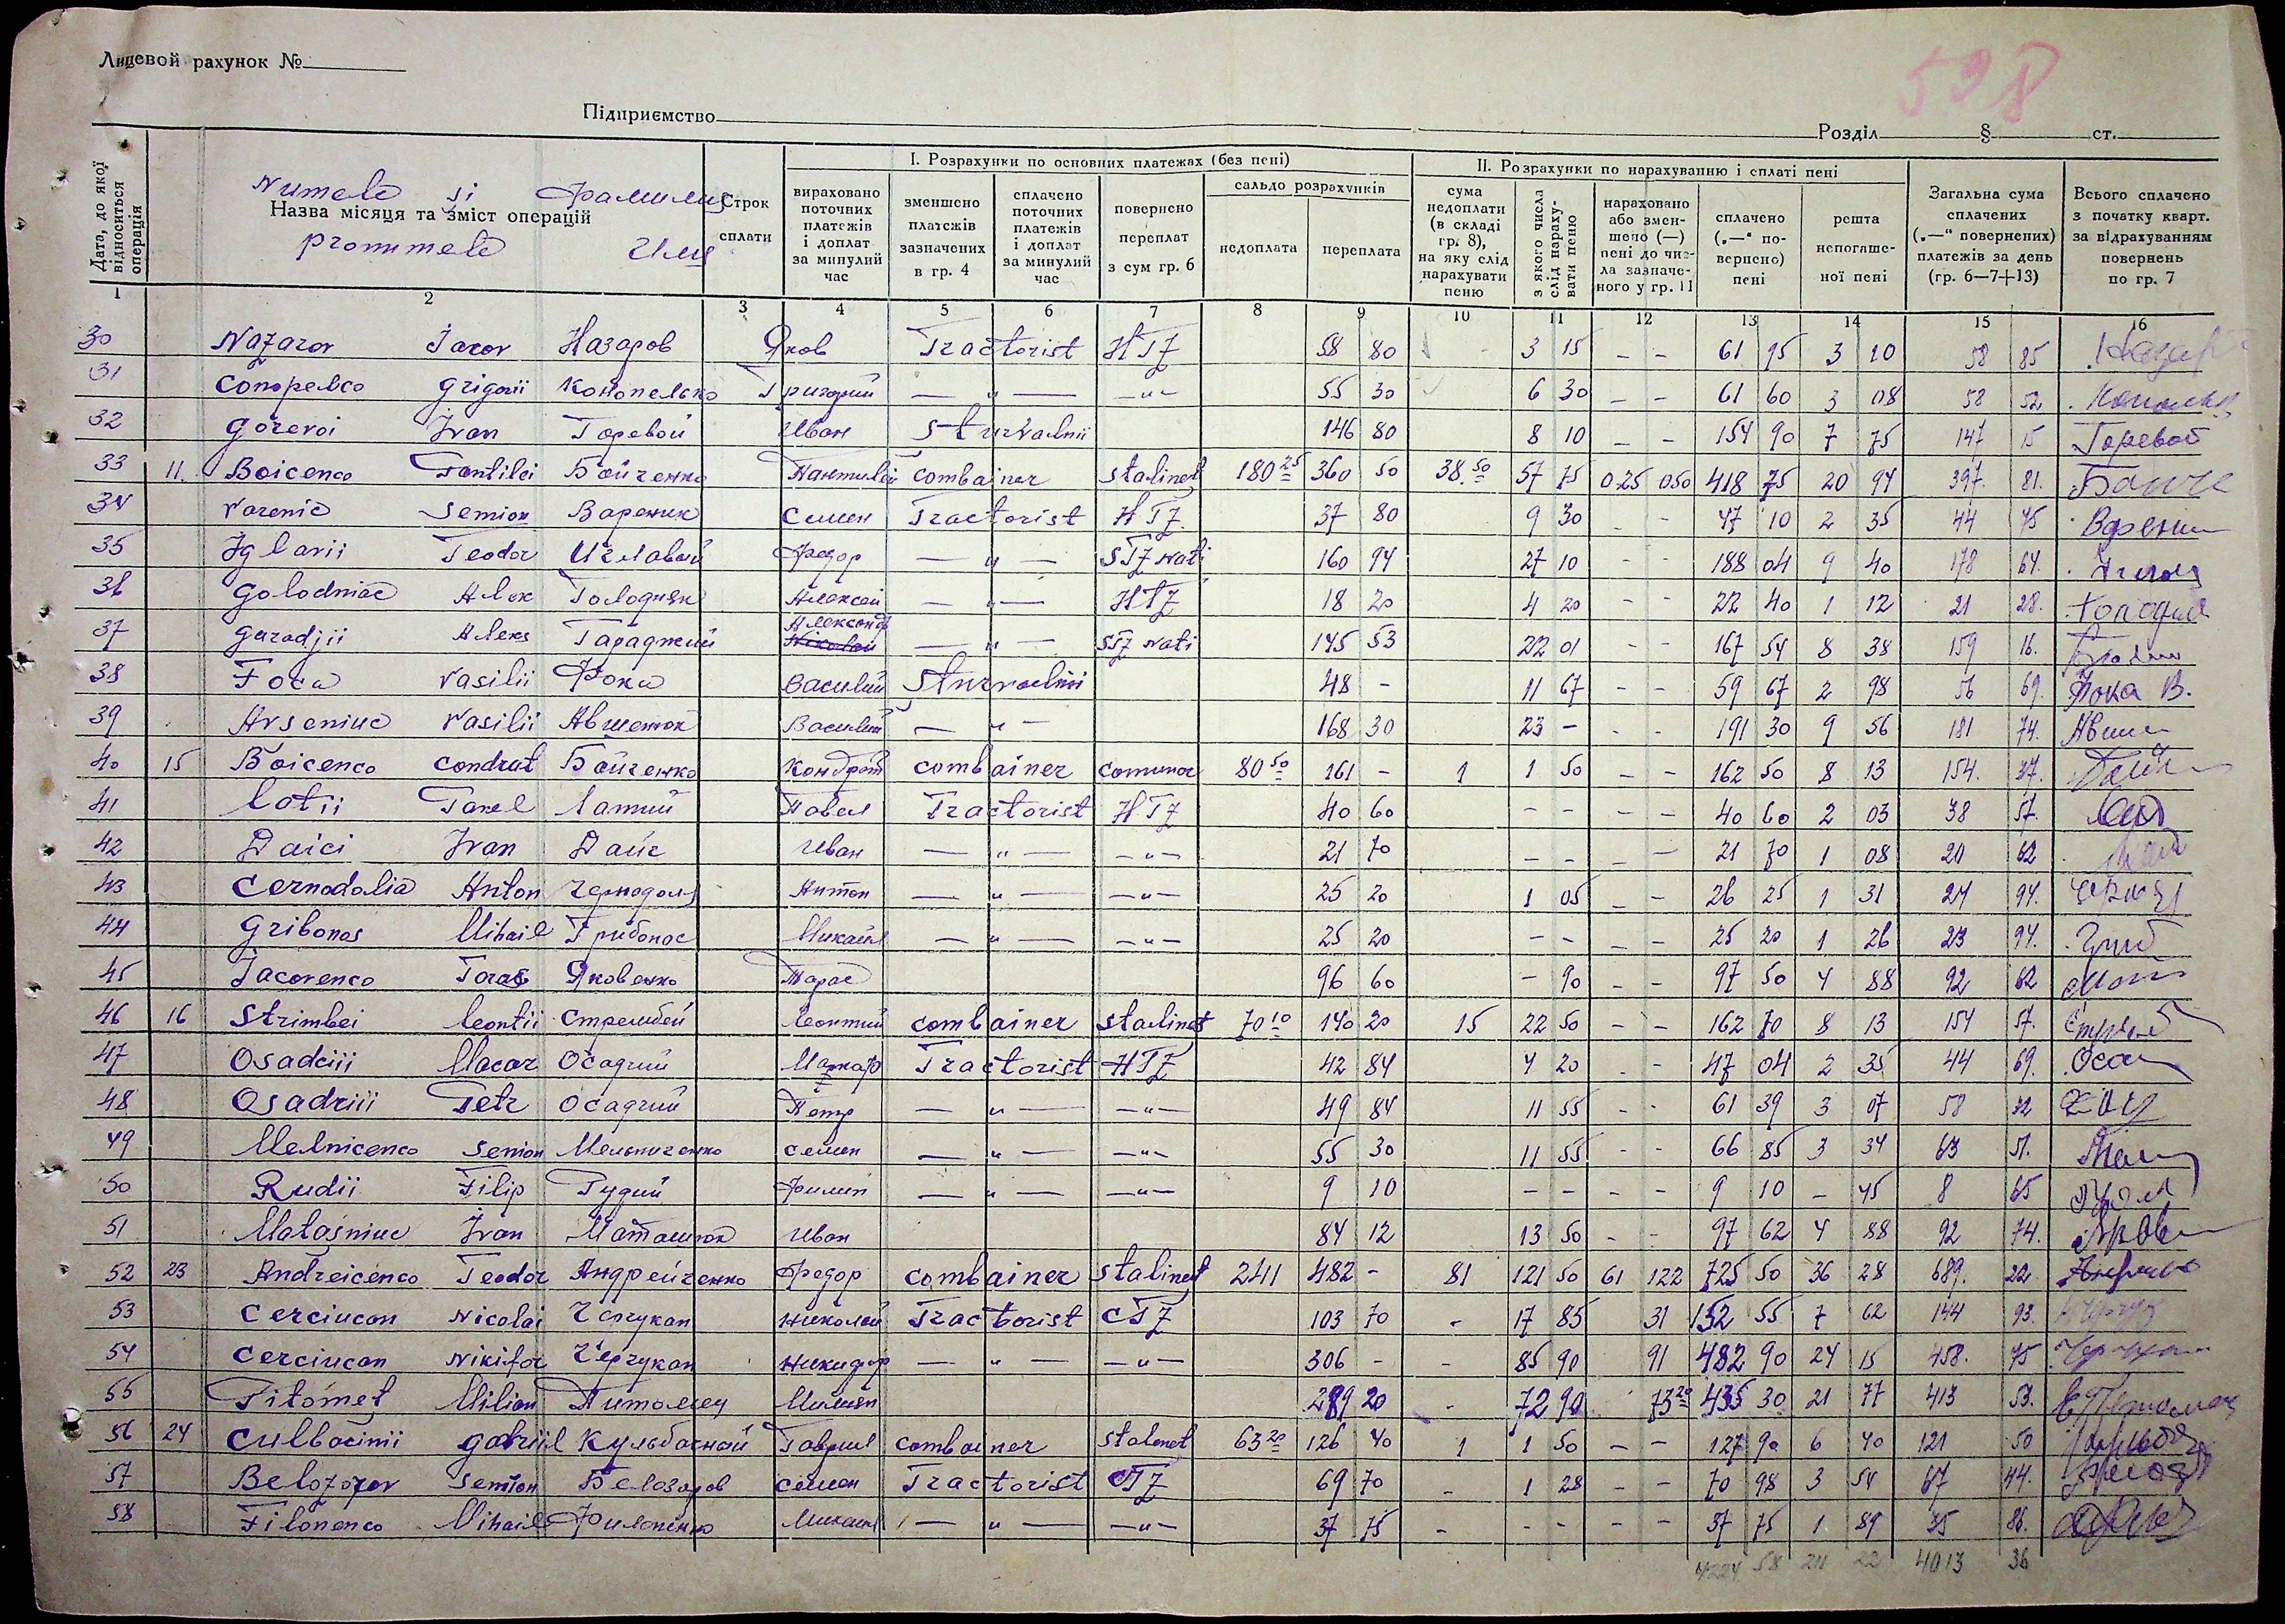 598
Лицевой рахунок №
Підприємство
Розділ § ст.
Дата, до якої відноситься операція
Numele si Фамилия
Назва місяця та зміст операцій
pronumele Имя
Строк сплати
I. Розрахунки по основних платежах (без пені)
вираховано поточних платежів і доплат за минулий час
зменшено платежів зазначених в гр. 4
сплачено поточних платежів і доплат за минулий час
повернено переплат з сум гр. 6
сальдо розрахунків
недоплата переплата
II. Розрахунки по нарахуванню і сплаті пені
сума недоплати (в складі гр. 8), на яку слід нарахувати пеню
з якого числа слід нараху-вати пеню
нараховано або змен-шено (—) пені до чис-ла зазначе-ного у гр. 11
сплачено („—“ по-вернено) пені
решта непогаше-ної пені
Загальна сума сплачених („—“ повернених) платежів за день (гр. 6—7+13)
Всього сплачено з початку кварт. за відрахуванням повернень по гр. 7
1 2 3 4 5 6 7 8 9 10 11 12 13 14 15 16
30 Nazarov Jacov Назаров Яков Tractorist HTZ 58 80 3 15 – – 61 95 3 10 58 85
31 Conopelco Grigorii Конопелько Григорий — " — — " — 55 30 6 30 – – 61 60 3 08 58 52
32 Gorevoi Ivan Горевой Иван Sturvalnii 146 80 8 10 – – 154 90 7 75 147 15 Горевой
33 11. Boicenco Pantilei Бойченко Пантилей combainer Stalinet 180 25 360 50 38.50 57 75 025 050 418 75 20 94 397. 81.
34 Varenic Semion Вареник Семен Tractorist HTZ 37 80 9 30 - - 47 10 2 35 44 75
35 Iglavii Teodor Иглавый Федор — " — STZ Nati 160 94 27 10 - - 188 04 9 40 178 64.
36 Golodniac Alex Голодняк Алексей — " — HTZ 18 20 4 20 - - 22 40 1 12 21 28.
37 Garadjii Alexs Гараджий Александр — " — STZ Nati 145 53 22 01 - - 167 54 8 38 159 16.
38 Foca Vasilii Фока Василий Sturvalnii 48 - 11 67 - - 59 67 2 98 56 69. Фока В.
39 Avseniuc Vasilii Авшенюк Василий — " — 168 30 23 – - - 191 30 9 56 181 74.
40 15 Boicenco Condrat Бойченко Кондрат combainer comunar 80 50 161 - 1 1 50 – – 162 50 8 13 154. 37.
41 Lotii Pavel Латий Павел Tractorist HTZ 40 60 - - – – 40 60 2 03 38 57.
42 Daici Ivan Дайс Иван — " — — " — 21 70 – – – – 21 70 1 08 20 62
43 Cernodolia Anton Чернодоля Антон — " — — " — 25 20 1 05 – – 26 25 1 31 24 94.
44 Gribonos Mihail Грибонос Михаил — " — — " — 25 20 - - – – 25 20 1 26 23 94.
45 Jacovenco Taras Яковенко Тарас 96 60 – 90 – – 97 50 4 88 92 62
46 16 Strimbei Leontii Стрембей Леонтий combainer Stalinet 70 10 140 20 15 22 50 – – 162 70 8 13 154 57.
47 Osadciii Macar Осадчий Макар Tractorist HTZ 42 84 4 20 - – 47 04 2 35 44 69.
48 Osadciii Petr Осадчий Петр — " — — " — 49 84 11 55 - - 61 39 3 07 58 32
49 Melnicenco Semion Мельниченко Семен — " — — " — 55 30 11 55 - - 66 85 3 34 63 51.
50 Rudii Filip Рудий Филип — " — — " — 9 10 – – – – 9 10 – 45 8 65
51 Matasniuc Ivan Маташнюк Иван 84 12 13 50 - - 97 62 4 88 92 74.
52 23 Andreicenco Teodor Андрейченко Федор combainer Stalinet 241 482 – 81 121 50 61 122 725 50 36 28 689. 22
53 Cerciucan Nicolai Черчукан Николай Tractorist СTZ 103 70 - 17 85 31 152 55 7 62 144 93.
54 Cerciucan Nikifor Черчукан Никифор — " — — " — 306 – - 85 90 91 482 90 24 15 458. 75
55 Pitomet Milian Питомец Милиян 289 20 - 72 90 73 20 435 30 21 77 413 53.
56 24 Culbacinii Gabriil Кульбачный Гавриил combainer Stalenet 63 20 126 40 1 1 50 – – 127 90 6 40 121 50
57 Belozorov Semion Белозоров Семен Tractorist СTZ 69 70 - 1 28 – – 70 98 3 54 67 44.
58 Filonenco Mihail Филоненко Михаил — " — — " — 37 75 - - - – – 37 75 1 89 35 86.
4224 58 211 22 4013 36